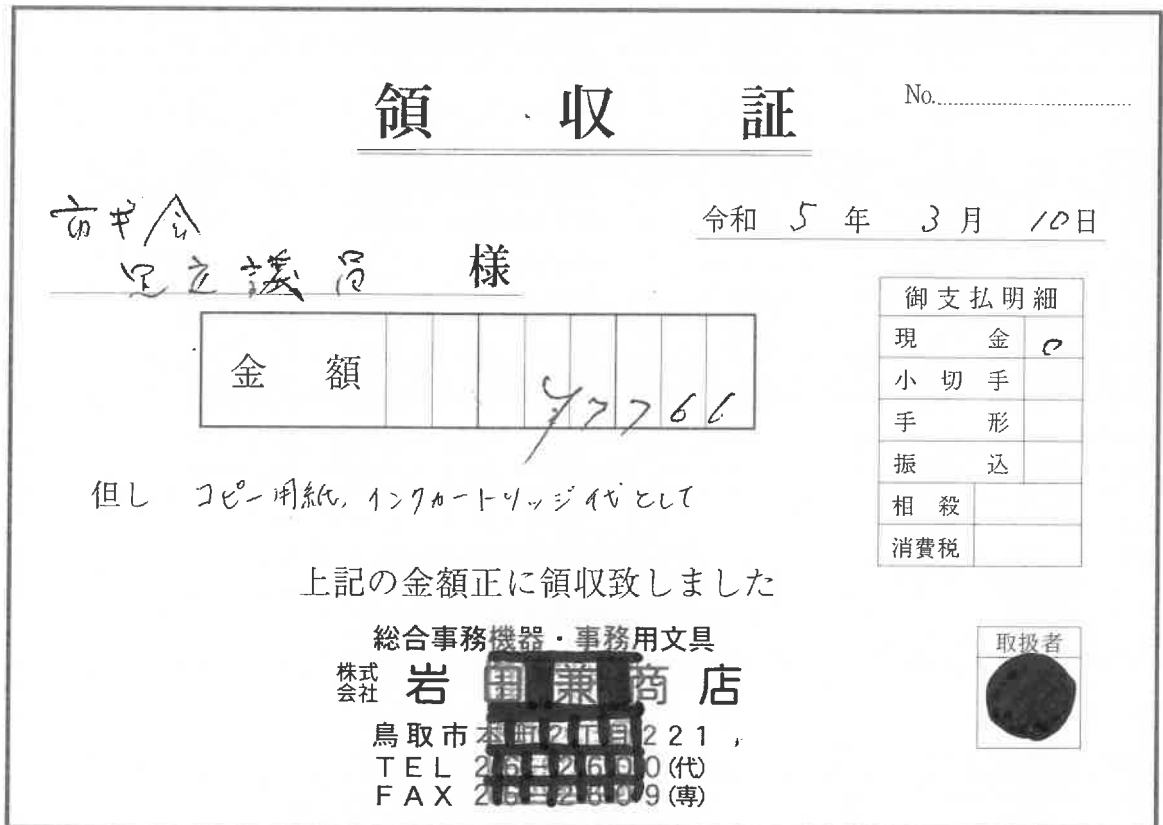 領収証
No.
市議会
足立議員 様
令和 5 年 3 月 10日
金額 ¥7766
御支払明細
現金 o
小切手
手形
振込
相殺
消費税
但し コピー用紙, インクカートリッジ代として
上記の金額正に領収致しました
総合事務機器・事務用文具
株式会社 岩田兼商店
鳥取市本町2丁目221
TEL 26-2600(代)
FAX 26-2609(専)
取扱者